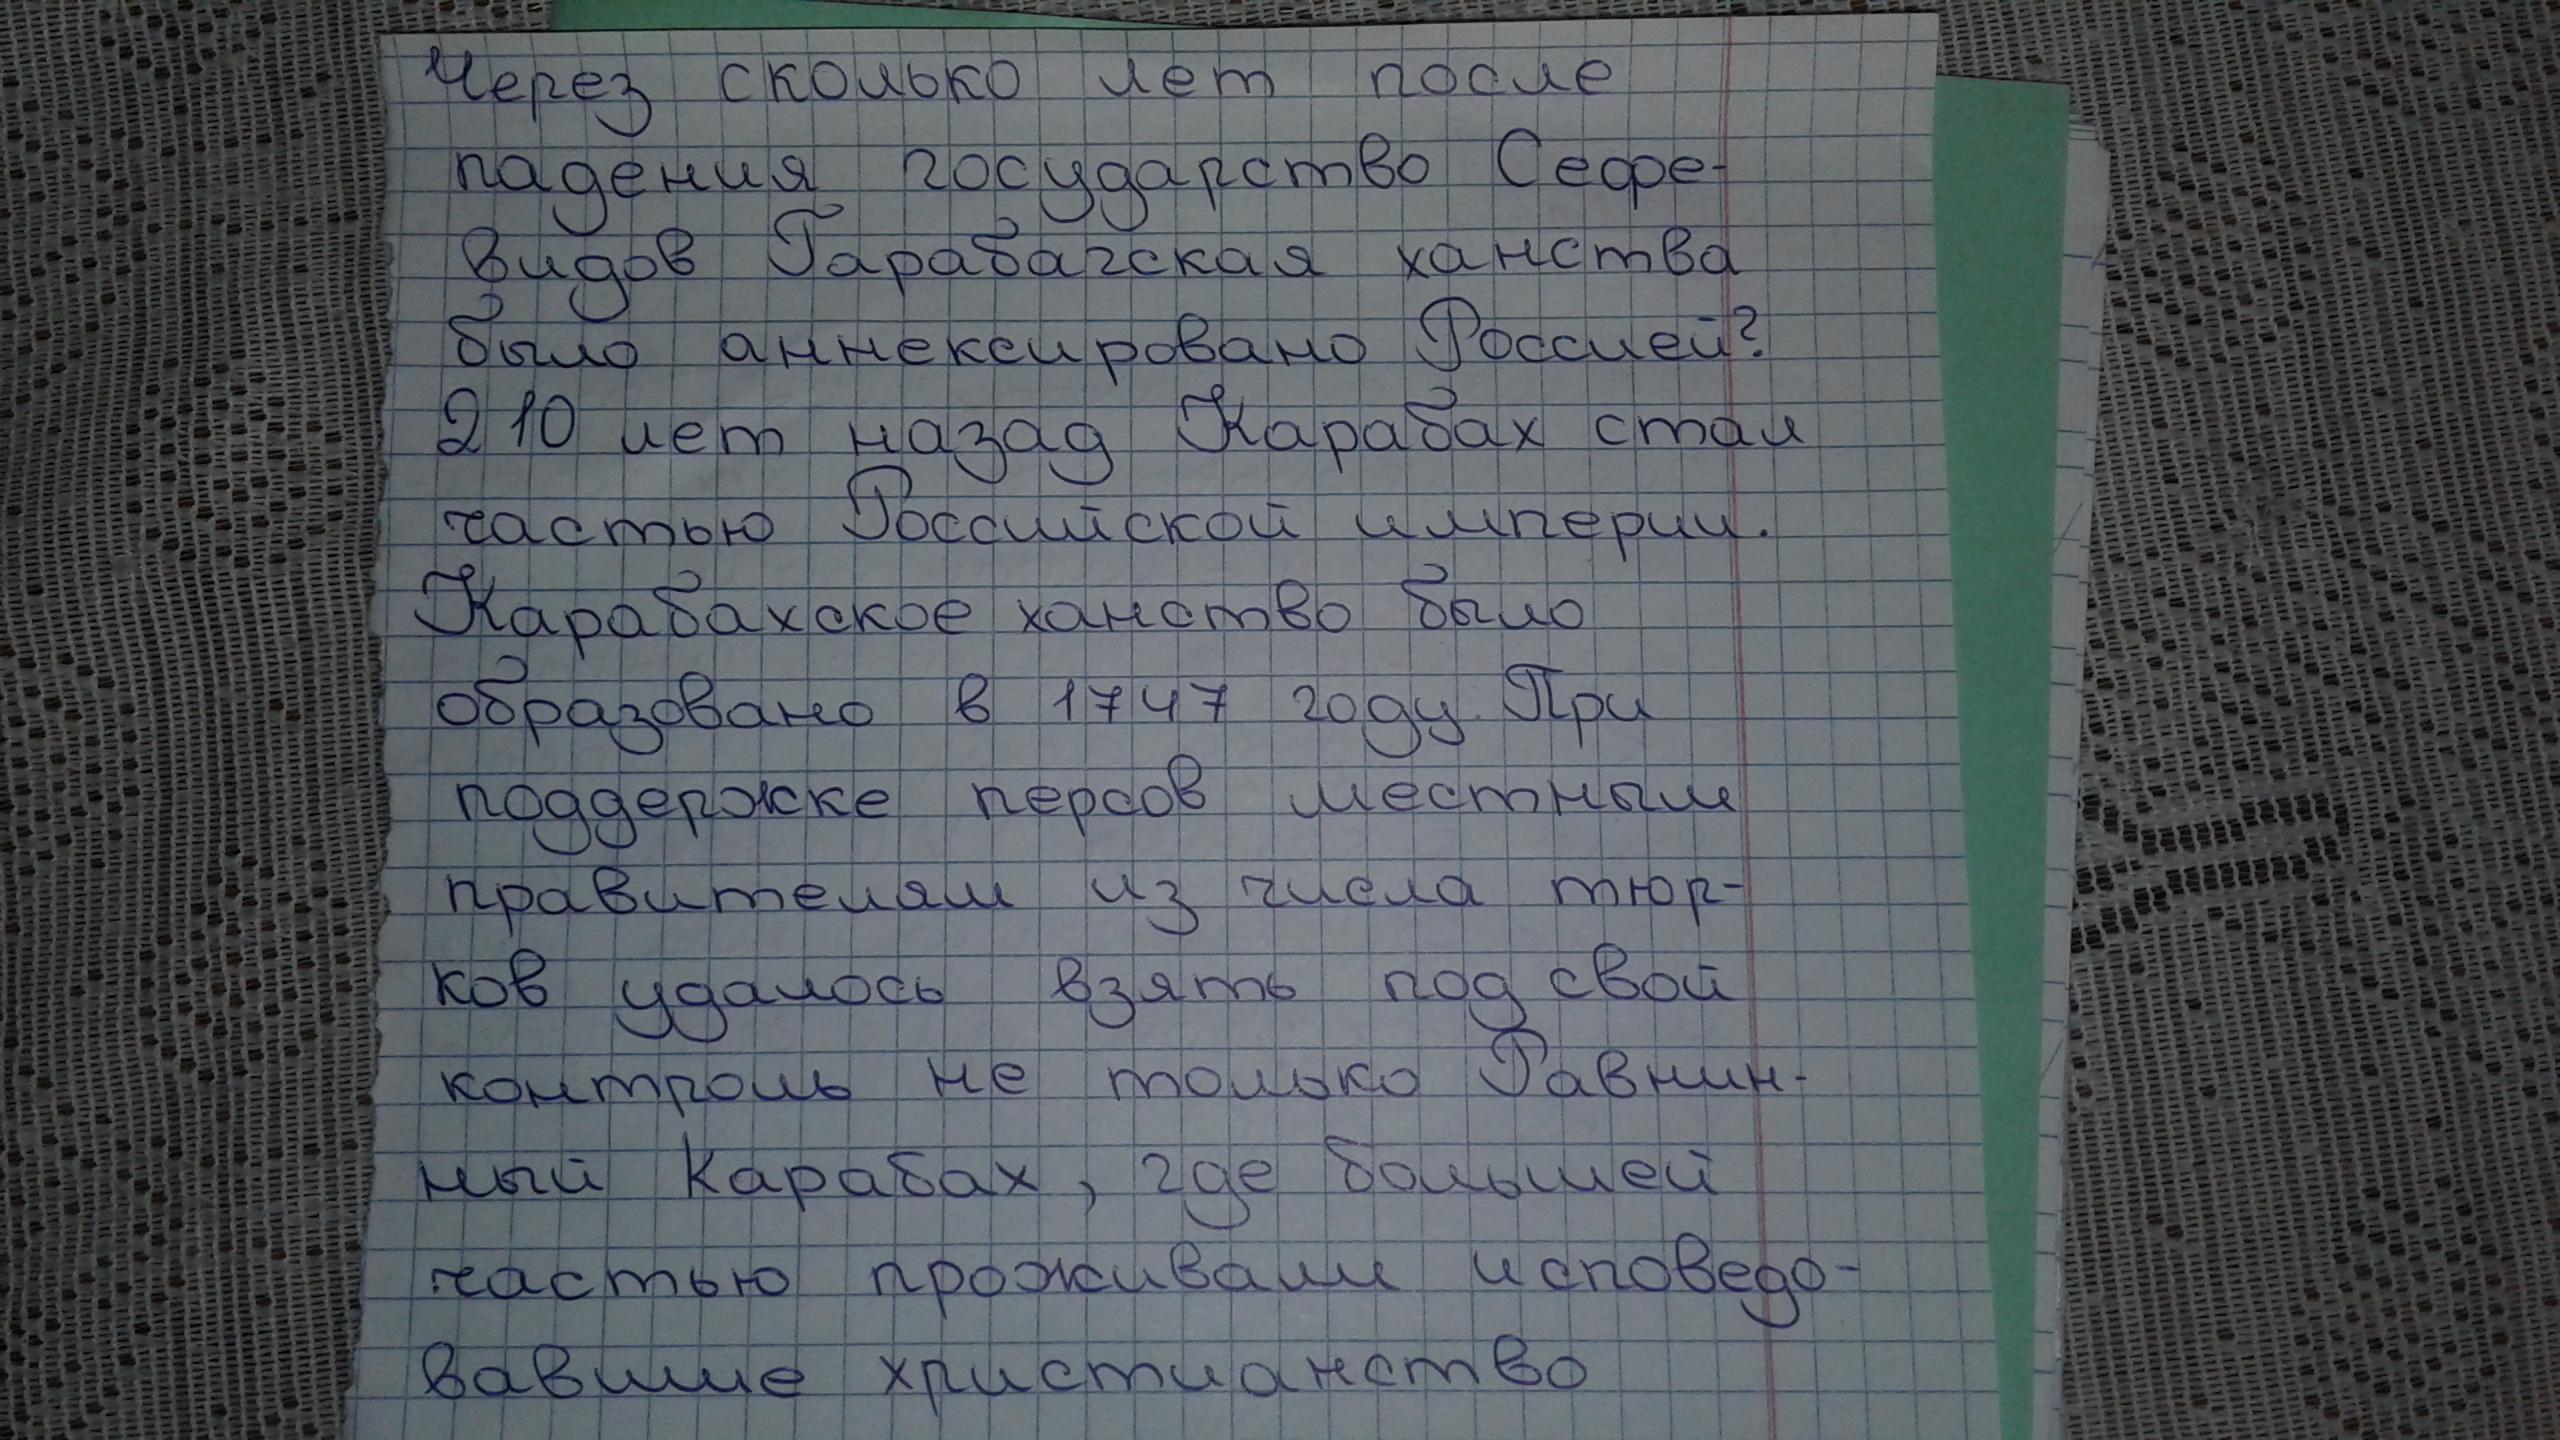 Через сколько лет после
падения государство Сефе-
видов Гарабагская ханства
было аннексировано Россией?
210 лет назад Карабах стал
частью Российской империи.
Карабахское ханство было
образовано в 1747 году. При
поддержке персов местным
правителям из числа тюр-
ков удалось взять под свой
контроль не только Равнин-
ный Карабах, где большей
частью проживали исповедо-
вавшие христианство